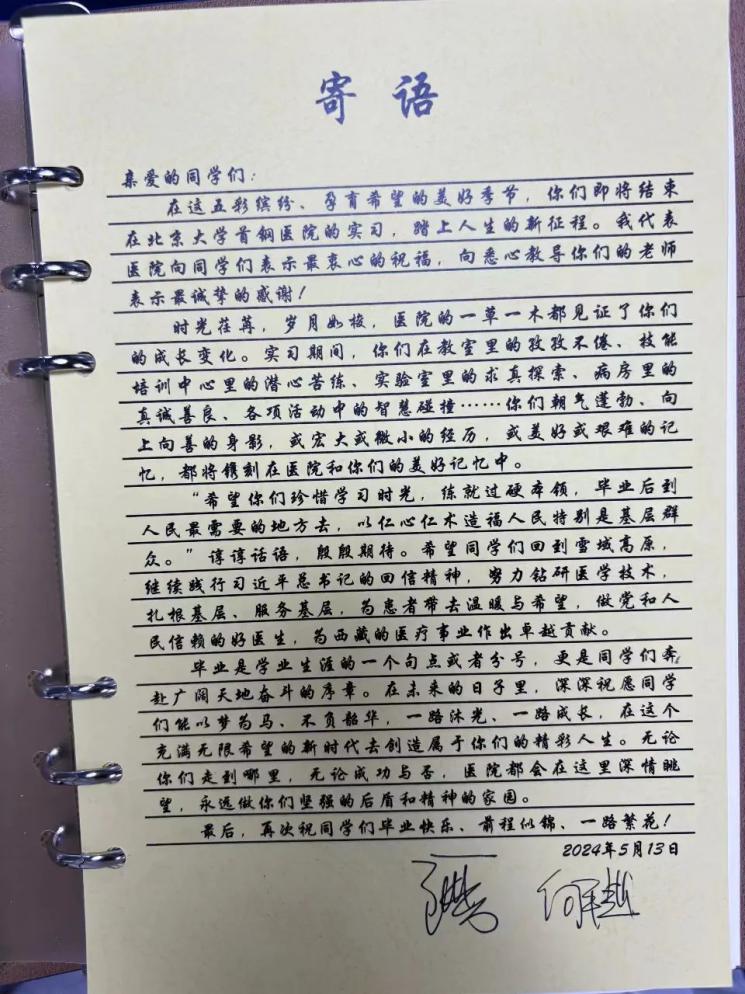 寄语
亲爱的同学们：
在这五彩缤纷、孕育希望的美好季节，你们即将结束
在北京大学首钢医院的实习，踏上人生的新征程。我代表
医院向同学们表示最衷心的祝福，向悉心教导你们的老师
表示最诚挚的感谢！
时光荏苒，岁月如梭，医院的一草一木都见证了你们
的成长变化。实习期间，你们在教室里的孜孜不倦、技能
培训中心里的潜心苦练、实验室里的求真探索、病房里的
真诚善良、各项活动中的智慧碰撞……你们朝气蓬勃、向
上向善的身影，或宏大或微小的经历，或美好或艰难的记
忆，都将镌刻在医院和你们的美好记忆中。
“希望你们珍惜学习时光，练就过硬本领，毕业后到
人民最需要的地方去，以仁心仁术造福人民特别是基层群
众。”谆谆话语，殷殷期待。希望同学们回到雪域高原，
继续践行习近平总书记的回信精神，努力钻研医学技术，
扎根基层、服务基层，为患者带去温暖与希望，做党和人
民信赖的好医生，为西藏的医疗事业作出卓越贡献。
毕业是学业生涯的一个句点或者分号，更是同学们奔
赴广阔天地奋斗的序章。在未来的日子里，深深祝愿同学
们能以梦为马、不负韶华，一路沐光、一路成长，在这个
充满无限希望的新时代去创造属于你们的精彩人生。无论
你们走到哪里，无论成功与否，医院都会在这里深情眺
望，永远做你们坚强的后盾和精神的家园。
最后，再次祝同学们毕业快乐、前程似锦、一路繁花！
2024年5月13日